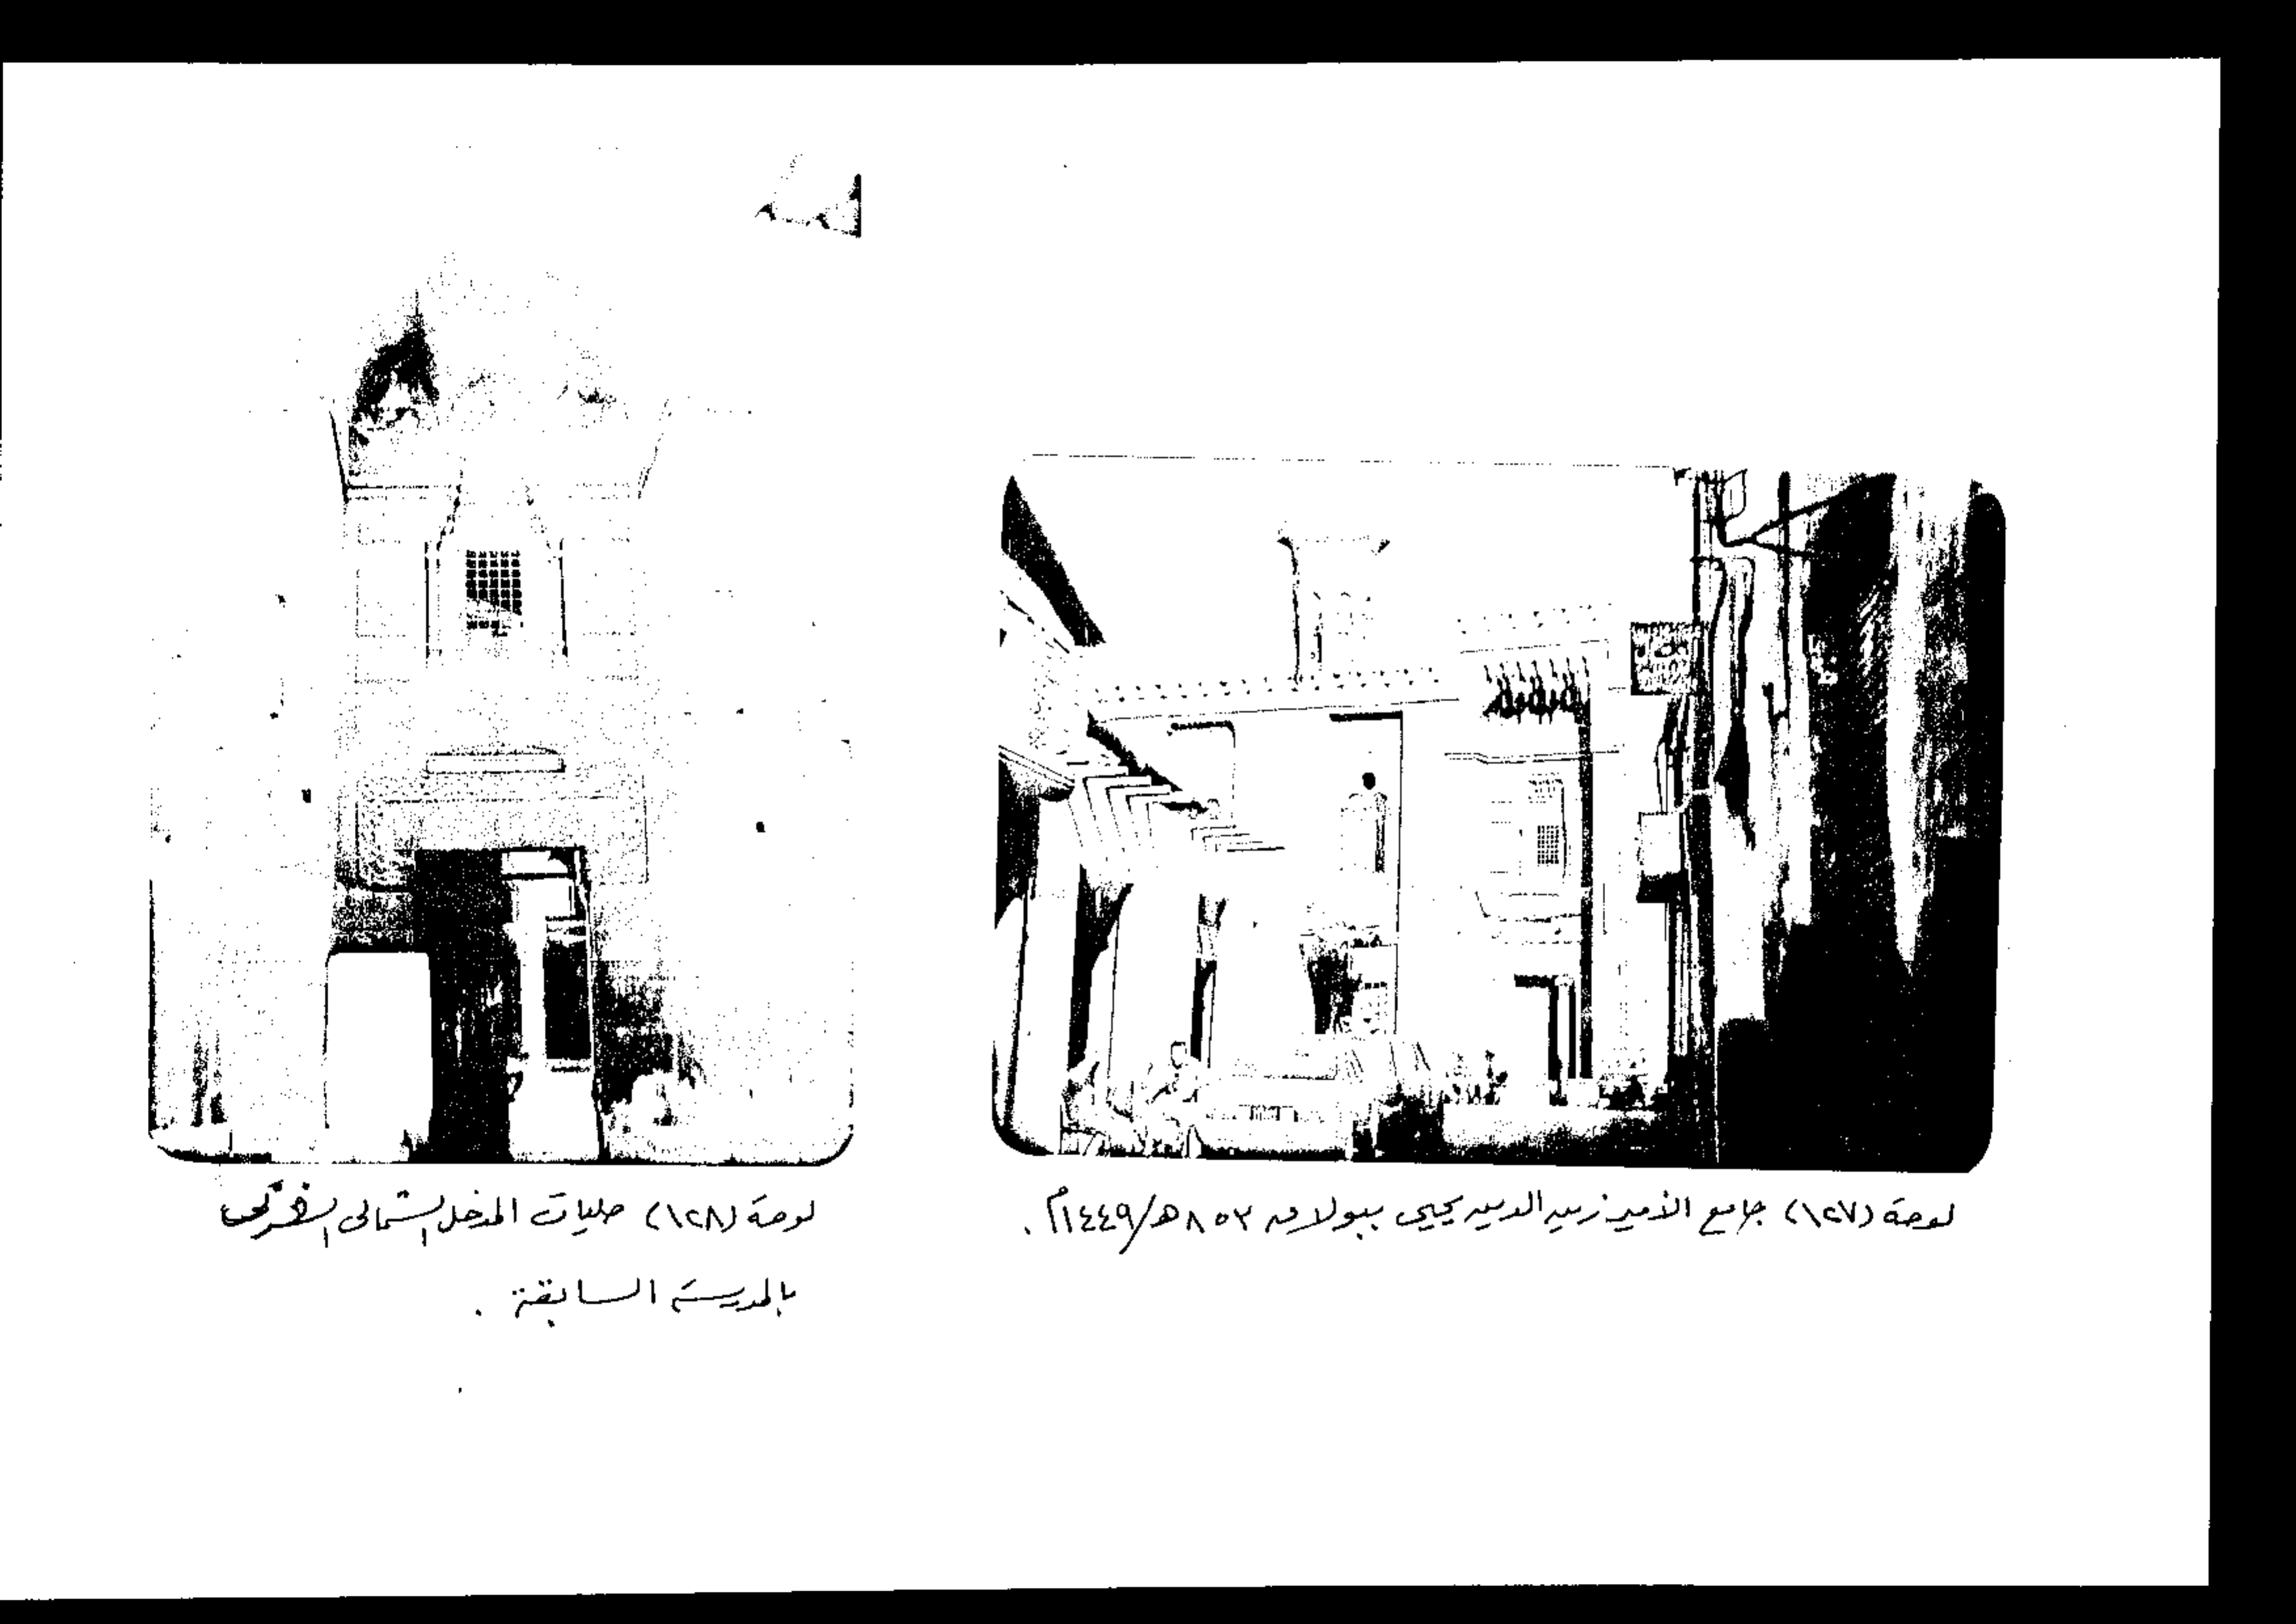 لوحة (١٢٧) جامع الأمير زين الدين يحيى ببولاق ٨٥٣هـ/١٤٤٩م .
لوحة (١٢٨) حليات المدخل الشمالى الغربى
بالمدرسة السابقة .